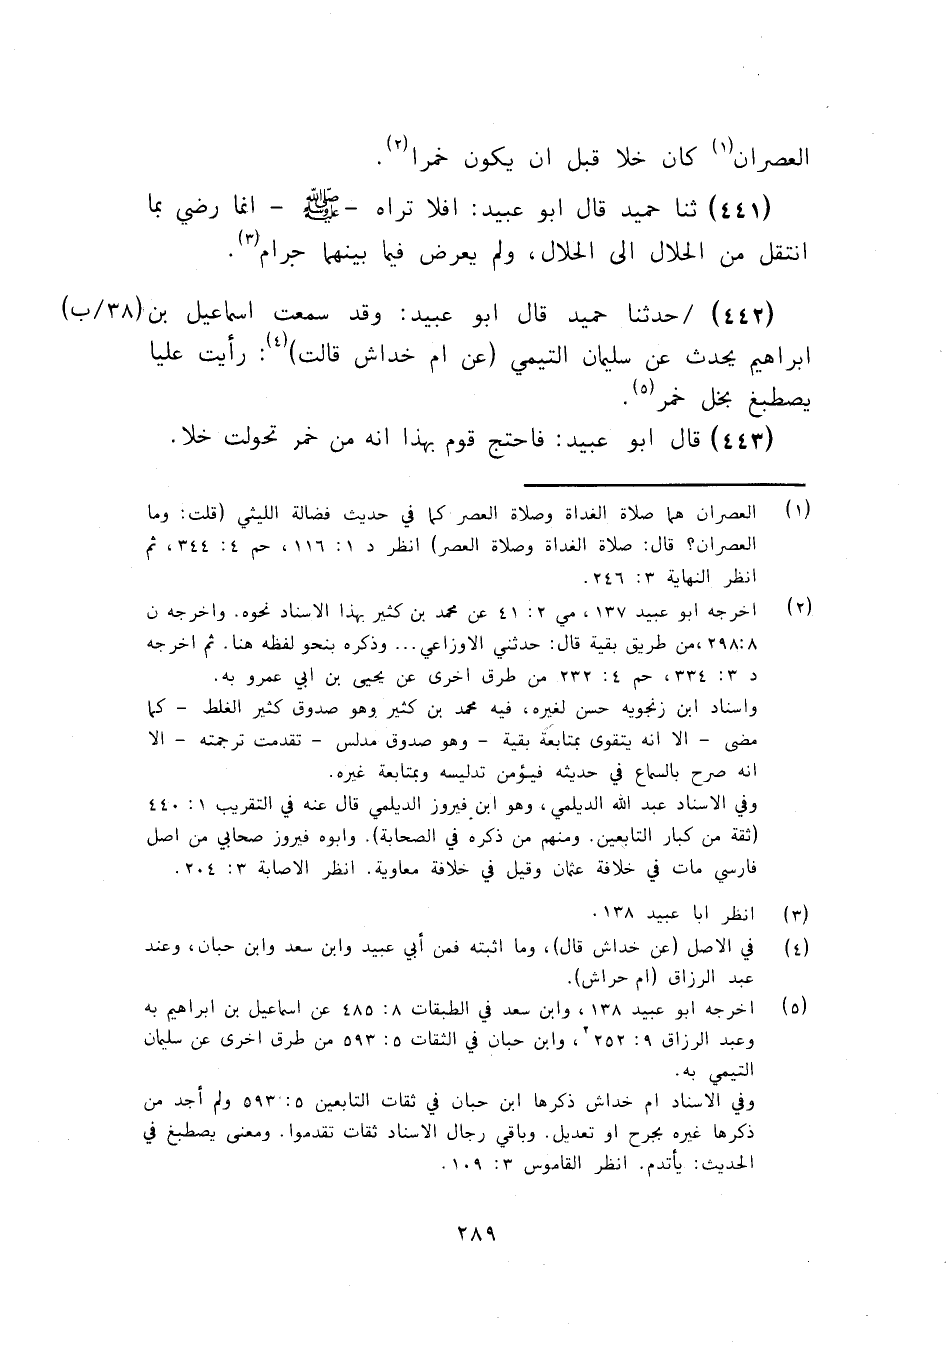 العصران(١) كان خلا قبل ان يكون خمرا(٢).
(٤٤١) ثنا حميد قال ابو عبيد: افلا تراه -ﷺ - انما رضي بما
انتقل من الحلال الى الحلال، ولم يعرض فيما بينهما حرام(٣).
(٤٤٢) /حدثنا حميد قال ابو عبيد: وقد سمعت اسماعيل بن (٣٨/ب)
ابراهيم يحدث عن سليمان التيمي (عن ام خداش قالت)(٤): رأيت عليا
يصطبغ بخل خمر(٥).
(٤٤٣) قال ابو عبيد: فاحتج قوم بهذا انه من خمر تحولت خلا.
(١) العصران هما صلاة الغداة وصلاة العصر كما في حديث فضالة الليثي (قلت: وما
العصران؟ قال: صلاة الغداة وصلاة العصر) انظر د ١: ١١٦، حم ٤: ٣٤٤، ثم
انظر النهاية ٣: ٢٤٦.
(٢) اخرجه ابو عبيد ١٣٧، مي ٢: ٤١ عن محمد بن كثير بهذا الاسناد نحوه. واخرجه ن
٨: ٢٩٨، من طريق بقية قال: حدثني الاوزاعي... وذكره بنحو لفظه هنا. ثم اخرجه
د ٣: ٣٣٤، حم ٤: ٢٣٢ من طرق اخرى عن يحيى بن ابي عمرو به.
واسناد ابن زنجويه حسن لغيره، فيه محمد بن كثير وهو صدوق كثير الغلط - كما
مضى - الا انه يتقوى بمتابعة بقية - وهو صدوق مدلس - تقدمت ترجمته - الا
انه صرح بالسماع في حديثه فيؤمن تدليسه وبمتابعة غيره.
وفي الاسناد عبد الله الديلمي، وهو ابن فيروز الديلمي قال عنه في التقريب ١: ٤٤٠
(ثقة من كبار التابعين. ومنهم من ذكره في الصحابة). وابوه فيروز صحابي من اصل
فارسي مات في خلافة عثمان وقيل في خلافة معاوية. انظر الاصابة ٣: ٢٠٤.
(٣) انظر ابا عبيد ١٣٨.
(٤) في الاصل (عن خداش قال)، وما اثبته فمن أبي عبيد وابن سعد وابن حبان، وعند
عبد الرزاق (ام حراش).
(٥) اخرجه ابو عبيد ١٣٨، وابن سعد في الطبقات ٨: ٤٨٥ عن اسماعيل بن ابراهيم به
وعبد الرزاق ٩: ٢٥٢، وابن حبان في الثقات ٥: ٥٩٣ من طرق اخرى عن سليمان
التيمي به.
وفي الاسناد ام خداش ذكرها ابن حبان في ثقات التابعين ٥: ٥٩٣ ولم أجد من
ذكرها غيره بجرح او تعديل. وباقي رجال الاسناد ثقات تقدموا. ومعنى يصطبغ في
الحديث: يأتدم. انظر القاموس ٣: ١٠٩.
٢٨٩